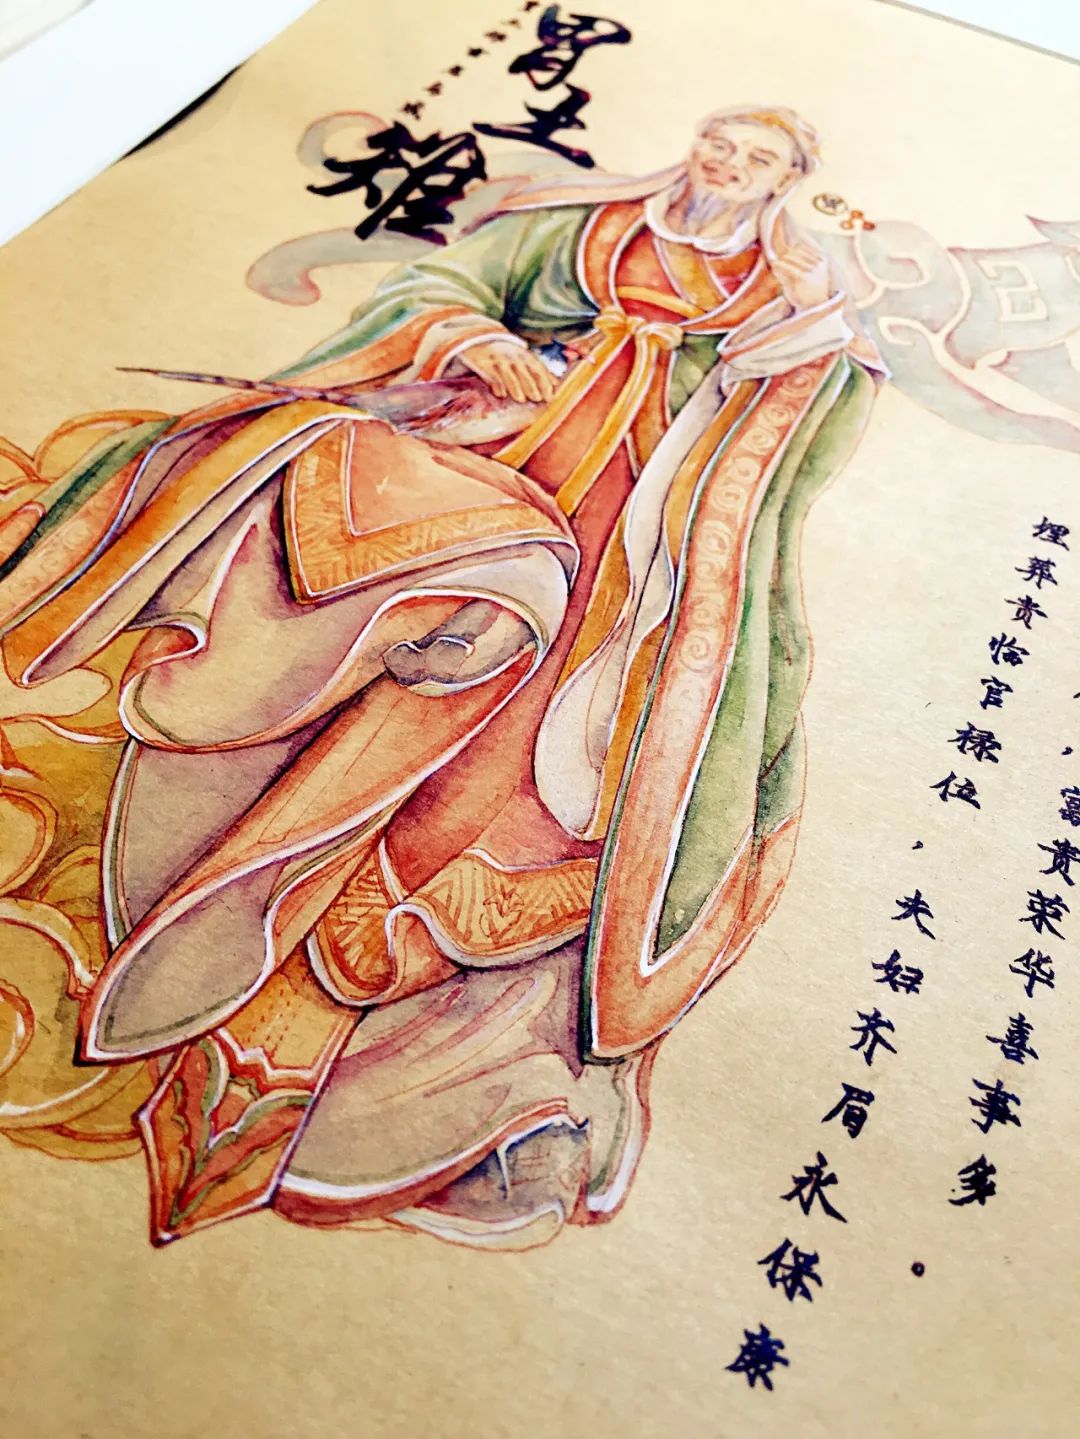 胃土雉
，富贵荣华喜事多。
埋葬贵临官禄位，夫妇齐眉永保康